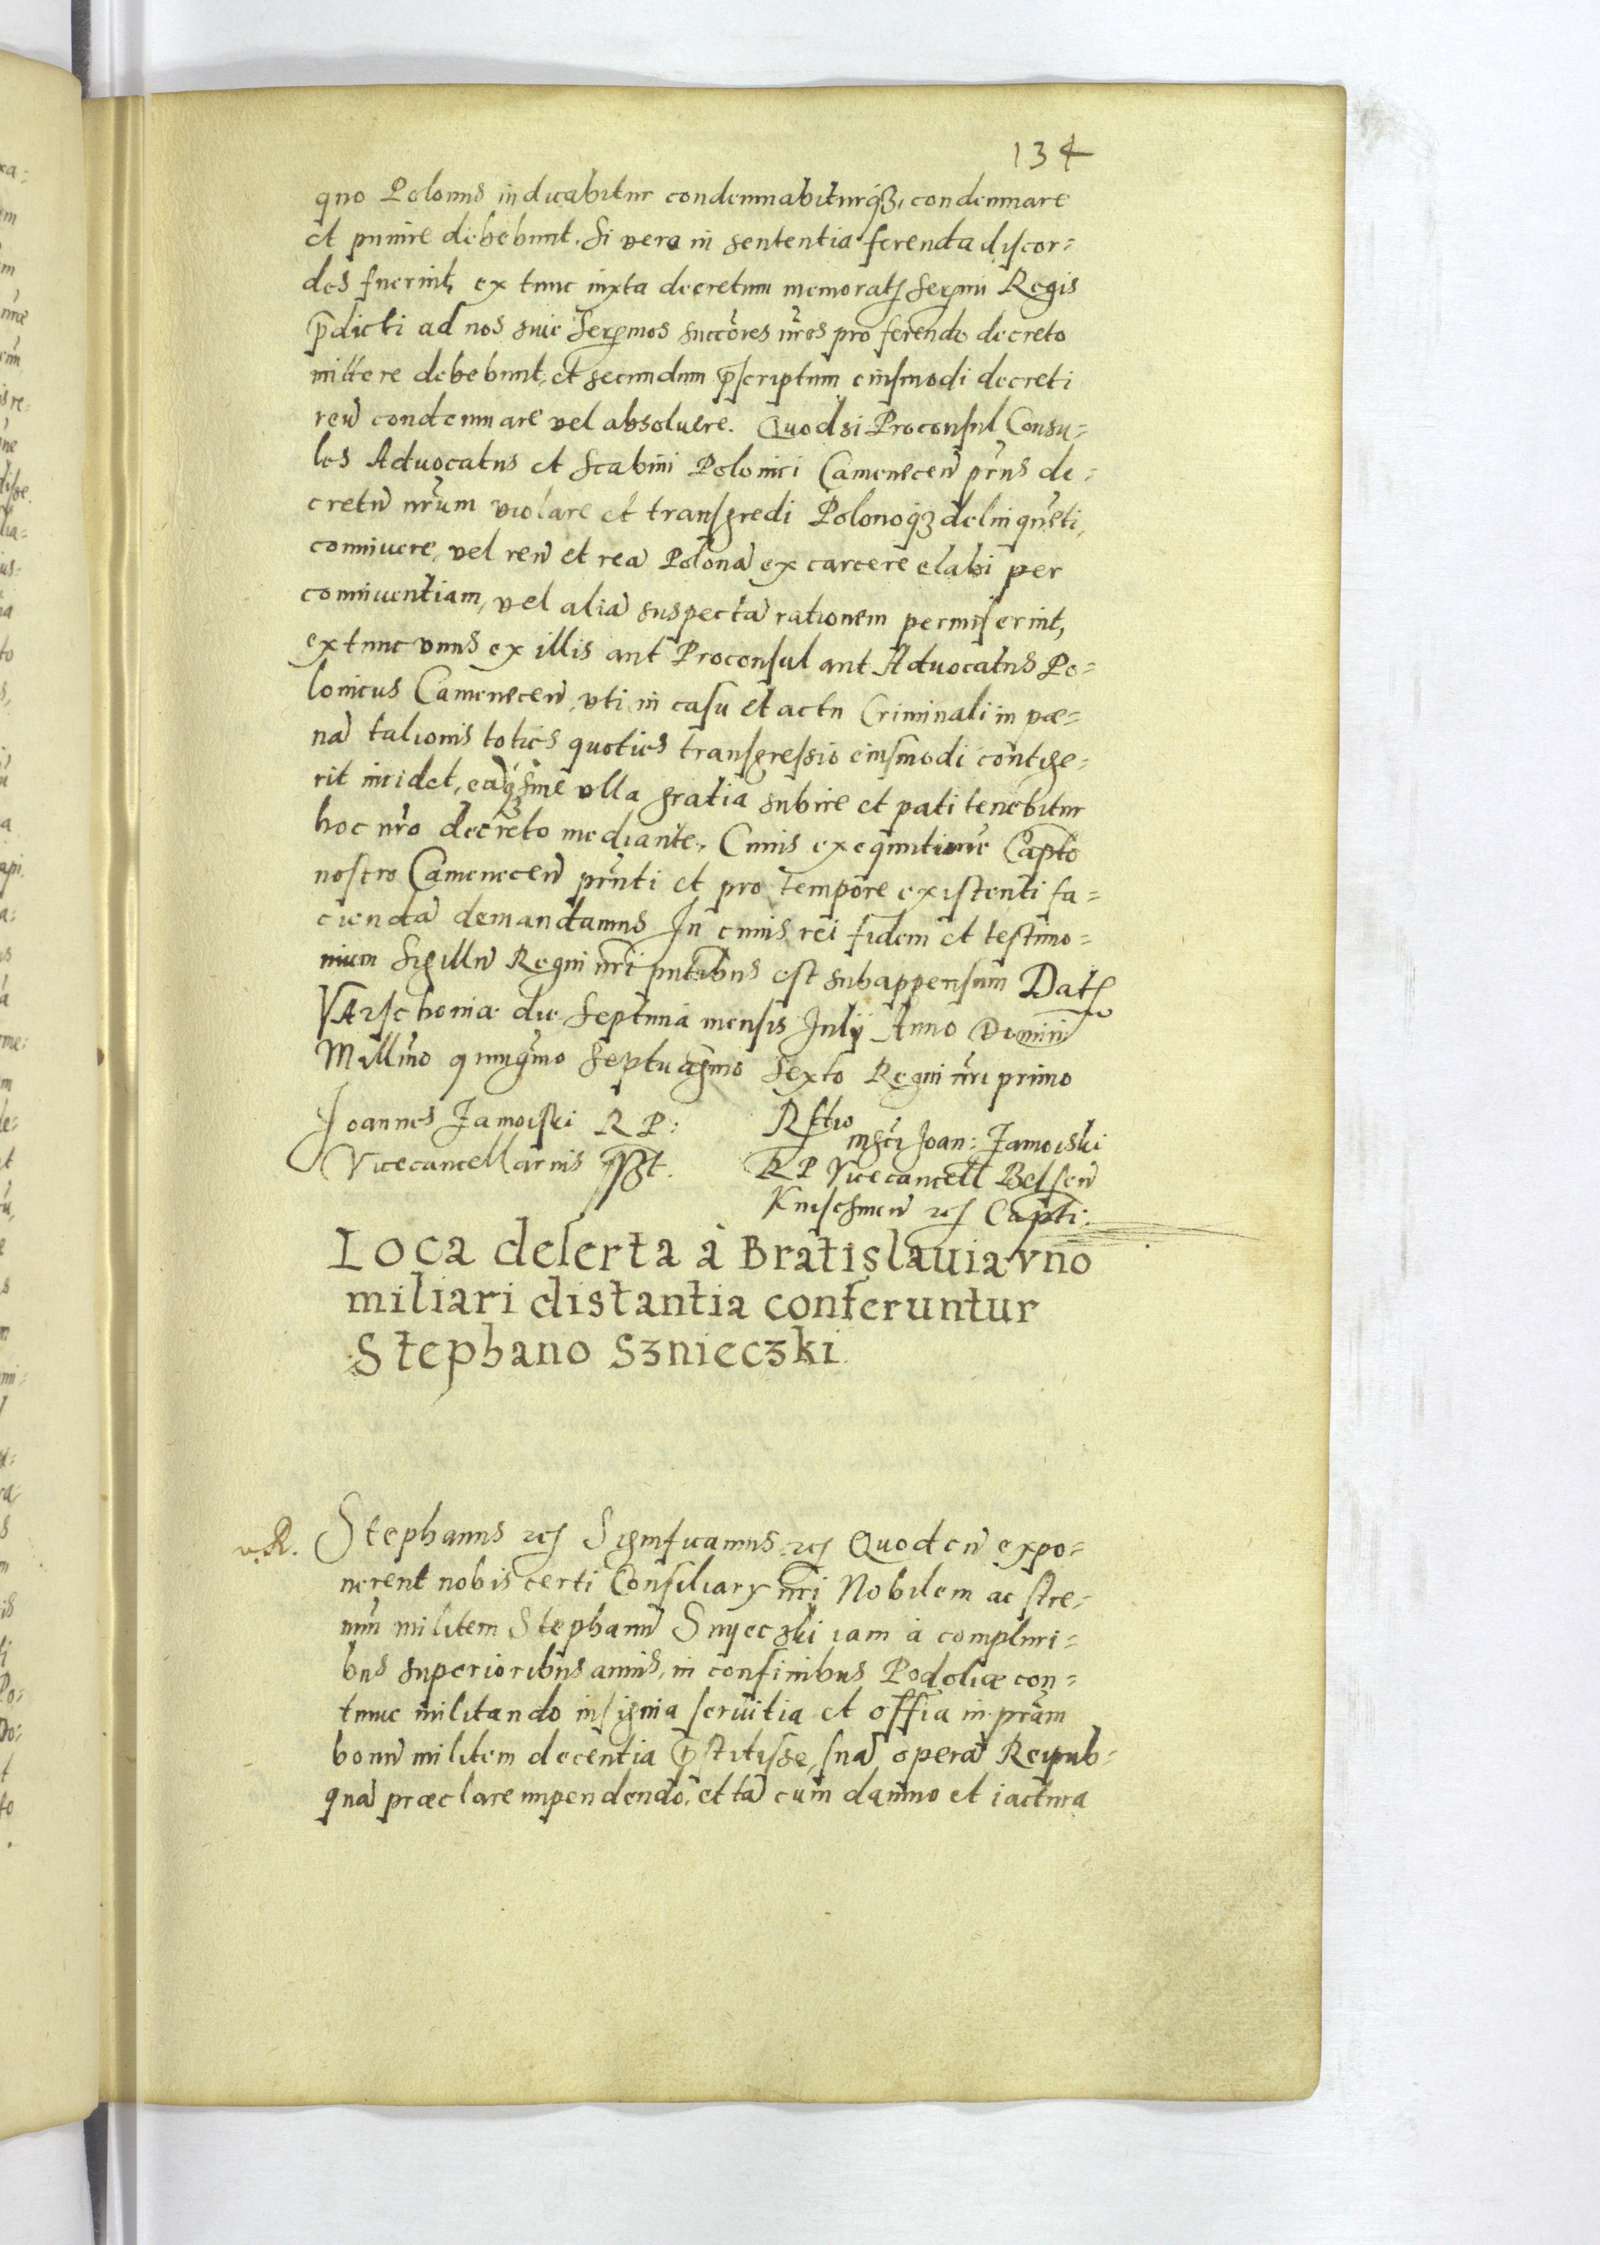 134
quo Polonus indicabitur condemnabiturqȝ, condemnare
et punire debebunt. Si vero in sententia ferenda discor=
des fuerint, ex tunc iuxta decretum memorati Sermi Regis
p̄dicti ad nos siue Sermos succ̃ores nr̃os pro ferendo decreto
mittere debebunt, et secundum p̄scriptum eiusmodi decreti
reũ condemnare vel absoluere. Quodsi Proconsul Consu=
les Aduocatus et Scabini Polonici Camenecen̄ pr̃ns de=
cretũ nr̃um violare et transgredi Polonoqȝ delinquẽti,
conniuere, vel reũ et reã Polonã ex carcere elabi per
conniuentiam, vel aliã suspectã rationem permiserint,
extunc vnus ex illis aut Proconsul aut Aduocatus Po=
lonicus Camenecen̄, vti in casu et actu Criminali in pœ=
nã talionis toties quoties transgressio eiusmodi contige=
rit incidet, eãqȝ sine vlla gratia subire et pati tenebitur
hoc nr̃o decreto mediante. Cuius exequutionẽ Capt̃o
nostro Camenecen̄ pr̃nti et pro tempore existenti fa=
ciendã demandamus In cuius rei fidem et testimo=
nium Sigillũ Regni nr̃i pntibus est subappensum Datȝ
VArschouiæ die Septima mensis Julij Anno Domini
Millm̃o quingm̃o Septuagm̃o Sexto Regni nr̃i primo
Joannes Zamoiski R P:
Vicecancellarius sszt.
Rl̃tio
mgci Joan: Zamoiski
R P Vicecancell Belsen̄
Knischinen̄ ꝛcȝ Capti.
Loca deserta à Bratislauia vno
miliari distantia conferuntur
Stephano Sȝniecȝki.
v.R.
Stephanus ꝛcȝ Significamus ꝛcȝ Quod cũ expo=
nerent nobis certi Consiliary nr̃i Nobilem ac stre=
nuũ militem Stephanũ Snyecȝki iam à compluri=
bus superioribus annis, in confinibus Podoliæ con=
tinue militando insignia seruitia et offia in pr̃am
bonũ militem decentia p̄stitisse, suã operã Reipub=
quã præclare impendendo, et tã cum damno et iactura